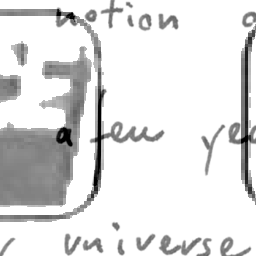 notion
a few
universe